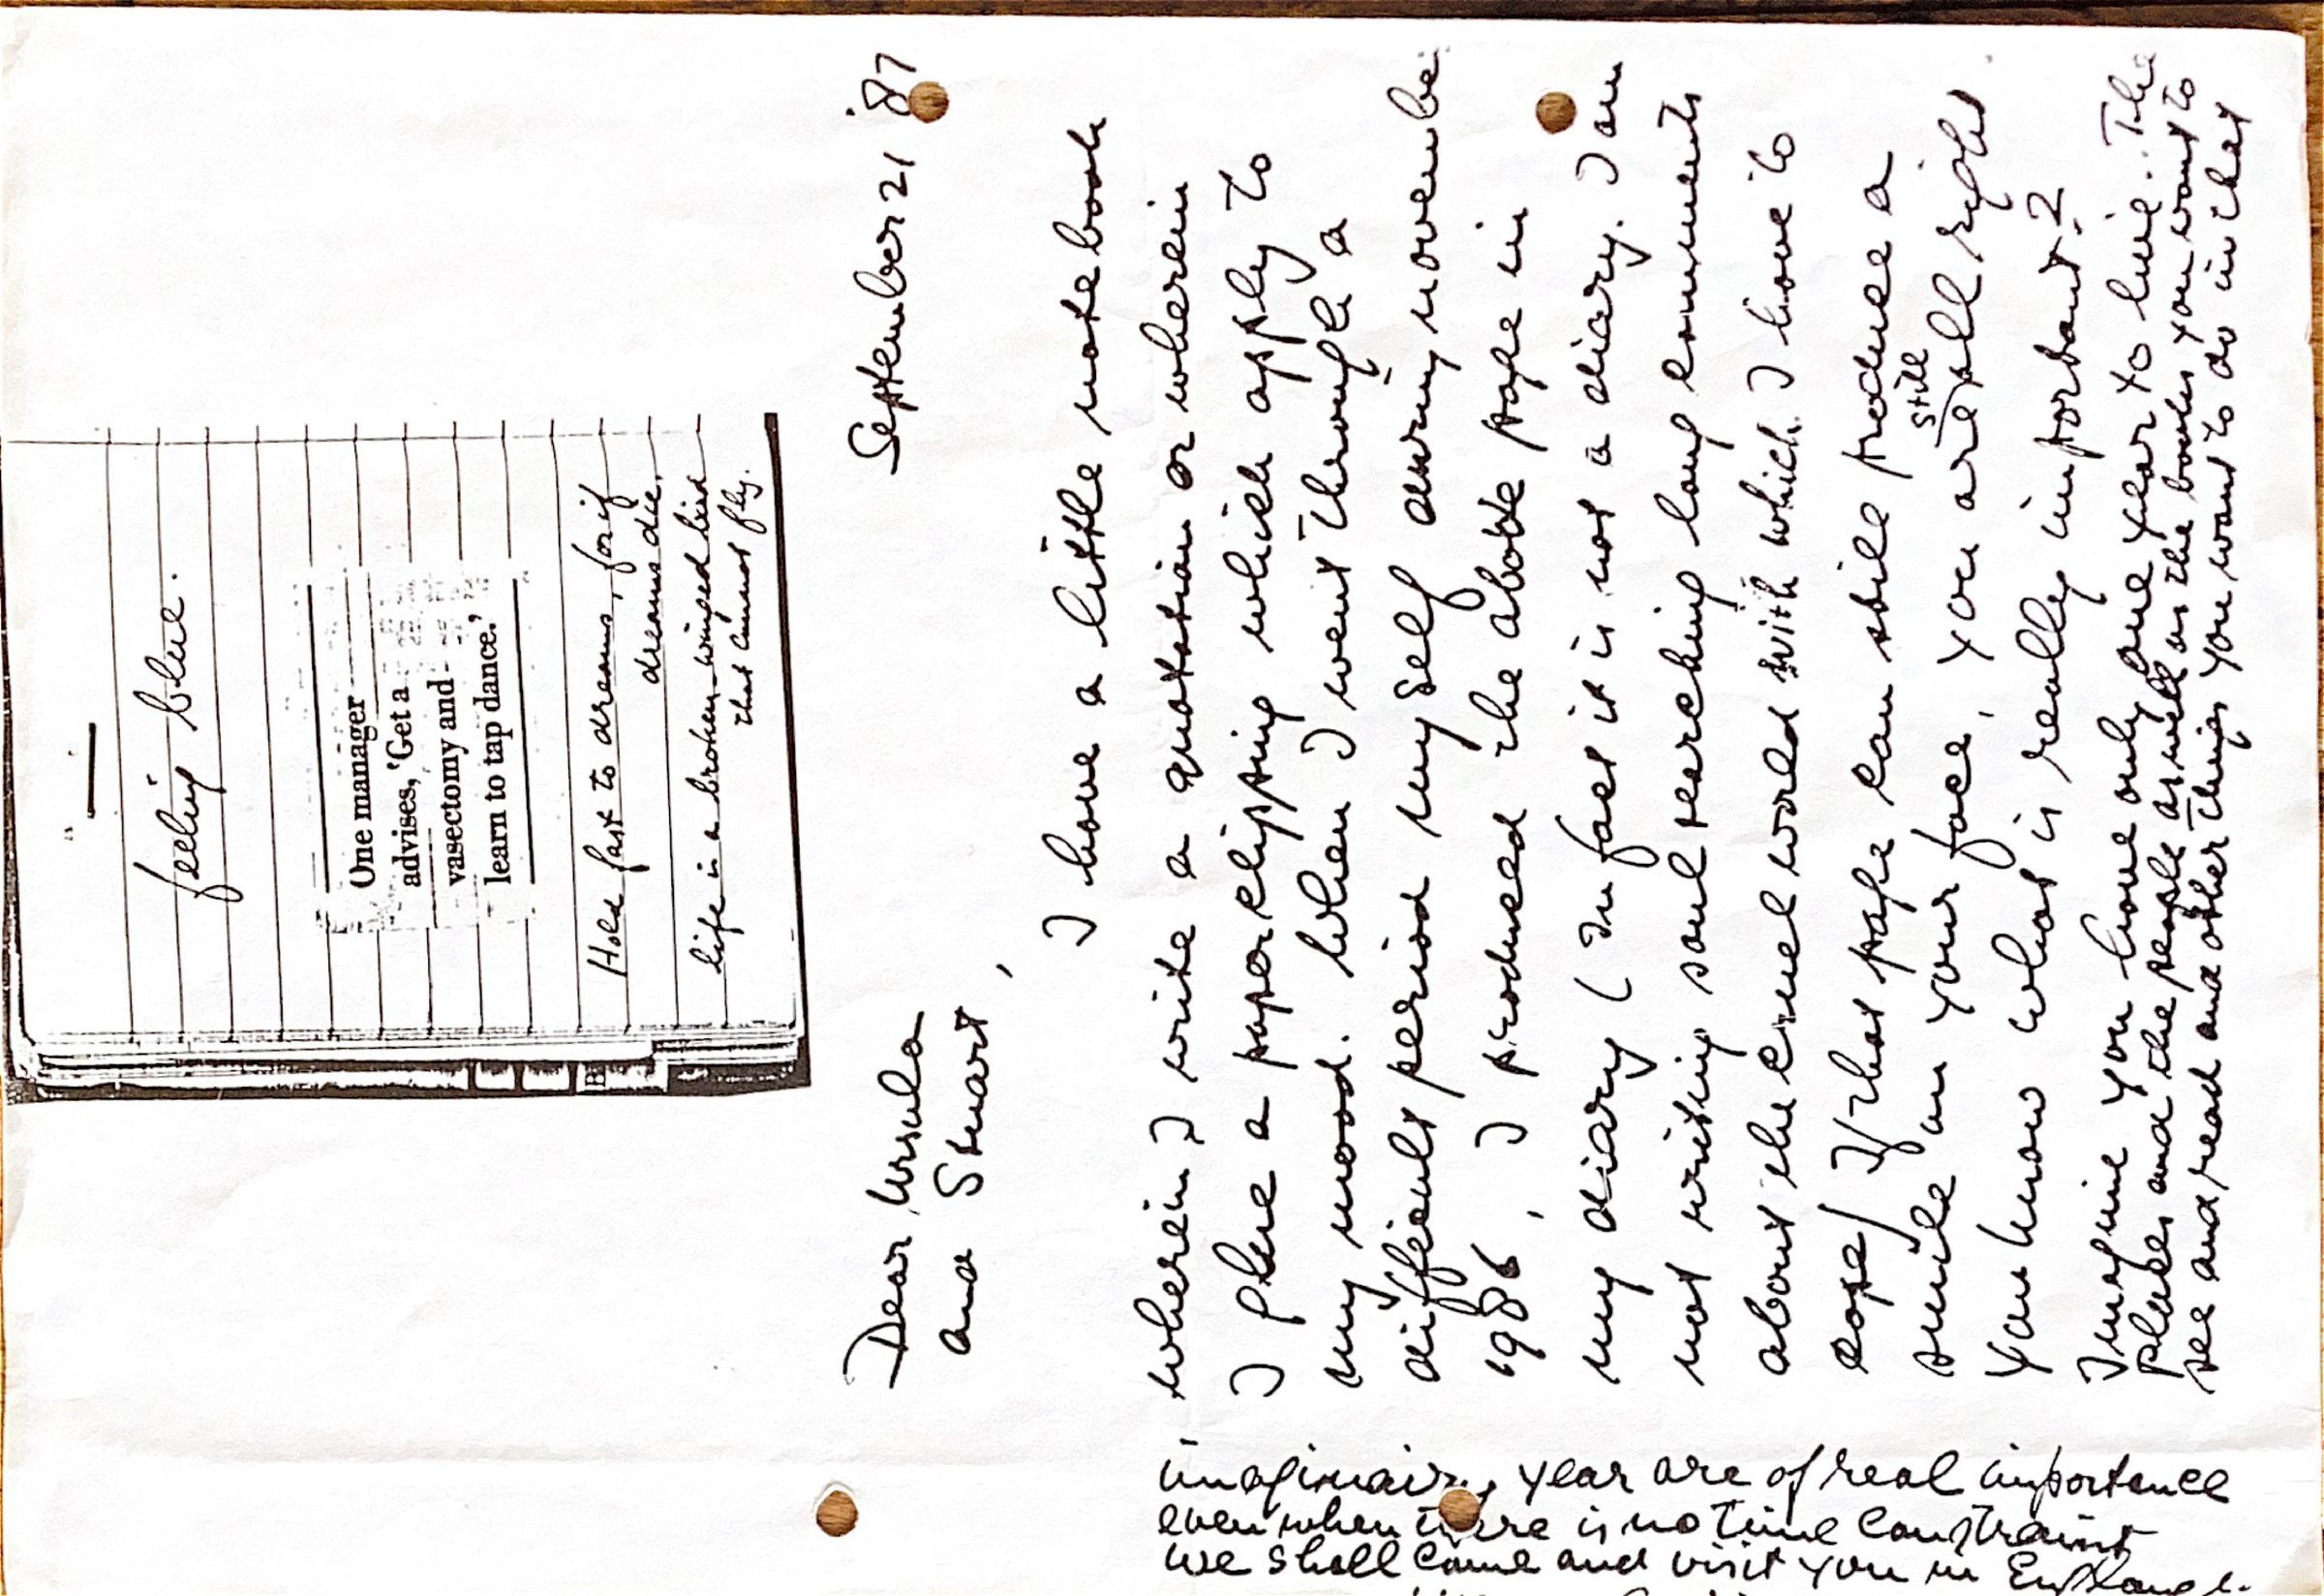 feeling blue.
One manager
advises, 'Get a
vasectomy and
learn to tap dance.'
Hold fast to dreams, for if
dreams die,
life is a broken-winged bird
that cannot fly.
September 21 '87
Dear Ursula
and Stuart,
I have a little note book
wherein I write a quotation or wherein
I place a paperclipping which apply to
my mood. When I went through a
difficult period myself during november
1986, I produced the above page in
my diary (In fact it is not a diary. I am
not writing soul searching long comments
about the cruel world with which I have to
cope) If that page can still produce a
smile on your face, you are still all right
You know what is really important?
Imagine you have only one year to live. The
places and the people as well as the books you want to
see and read and other things you want to do in that
imaginairy year are of real importence
even when there is no time constraint
we shall come and visit you in England.